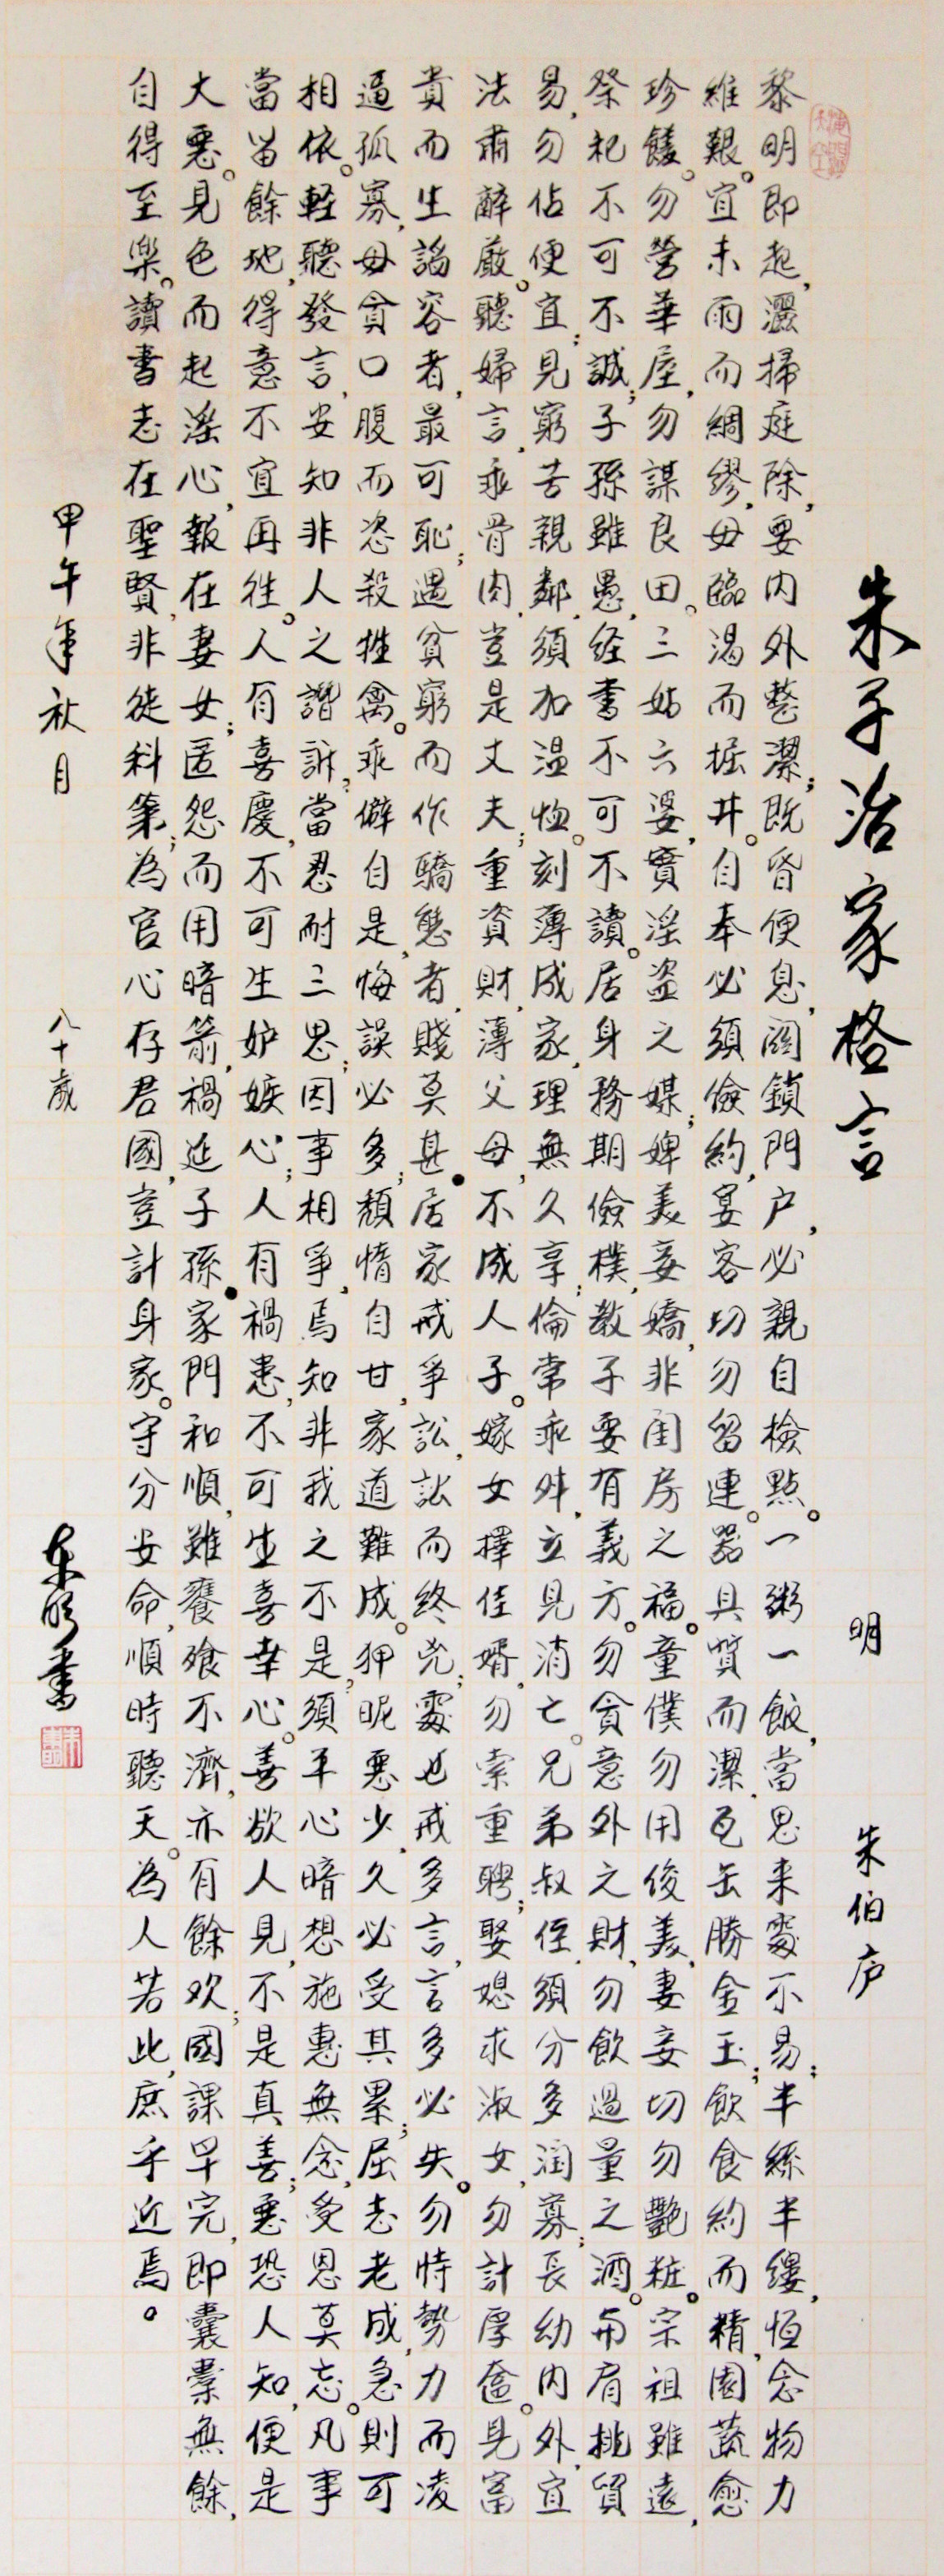 朱子治家格言
明 朱伯庐
黎明即起,灑掃庭除,要内外整潔;既昏便息,関鎖門户,必親自檢點。一粥一飯,當思来處不易;半絲半縷,恒念物力
維艱。宜未雨而綢繆,毋臨渴而掘井。自奉必須儉約,宴客切勿留連。器具質而潔,瓦缶勝金玉;飲食約而精,園蔬愈
珍饈。勿營華屋,勿謀良田。三姑六婆,實淫盗之媒;婢美妾嬌,非閨房之福。童僕勿用俊美,妻妾切勿艷粧。宗祖雖遠,
祭祀不可不誠;子孫雖愚,经書不可不讀。居身務期儉樸,教子要有義方。勿貪意外之財,勿飲過量之酒。与肩挑貿
易,勿佔便宜;見窮苦親鄰,須加温恤。刻薄成家,理無久享;倫常乖舛,立見消亡。兄弟叔侄,須分多潤寡;長幼内外,宜
法肅辭嚴。聽婦言,乖骨肉,豈是丈夫;重資財,薄父母,不成人子。嫁女擇佳婿,勿索重聘;娶媳求淑女,勿計厚奩。見富
貴而生諂容者,最可恥;遇貧窮而作驕態者,賤莫甚。居家戒爭訟,訟而終兇;處世戒多言,言多必失。勿恃勢力而凌
逼孤寡,毋貪口腹而恣殺牲禽。乖僻自是,悔誤必多;頹惰自甘,家道難成。狎昵惡少,久必受其累;屈志老成,急則可
相依。軽聽發言,安知非人之譖訴,當忍耐三思;因事相爭,焉知非我之不是,須平心暗想。施惠無念,受恩莫忘。凡事
當留餘地,得意不宜再往。人有喜慶,不可生妒嫉心;人有禍患,不可生喜幸心。善欲人見,不是真善;惡恐人知,便是
大惡。見色而起淫心,報在妻女;匿怨而用暗箭,禍延子孫。家門和順,雖饔飧不濟,亦有餘欢;國課早完,即囊橐無餘,
自得至樂。讀書志在聖賢,非徒科第;為官心存君國,豈計身家。守分安命,順時聽天。為人若此,庶乎近焉。
甲午年秋月 八十歲 东明書